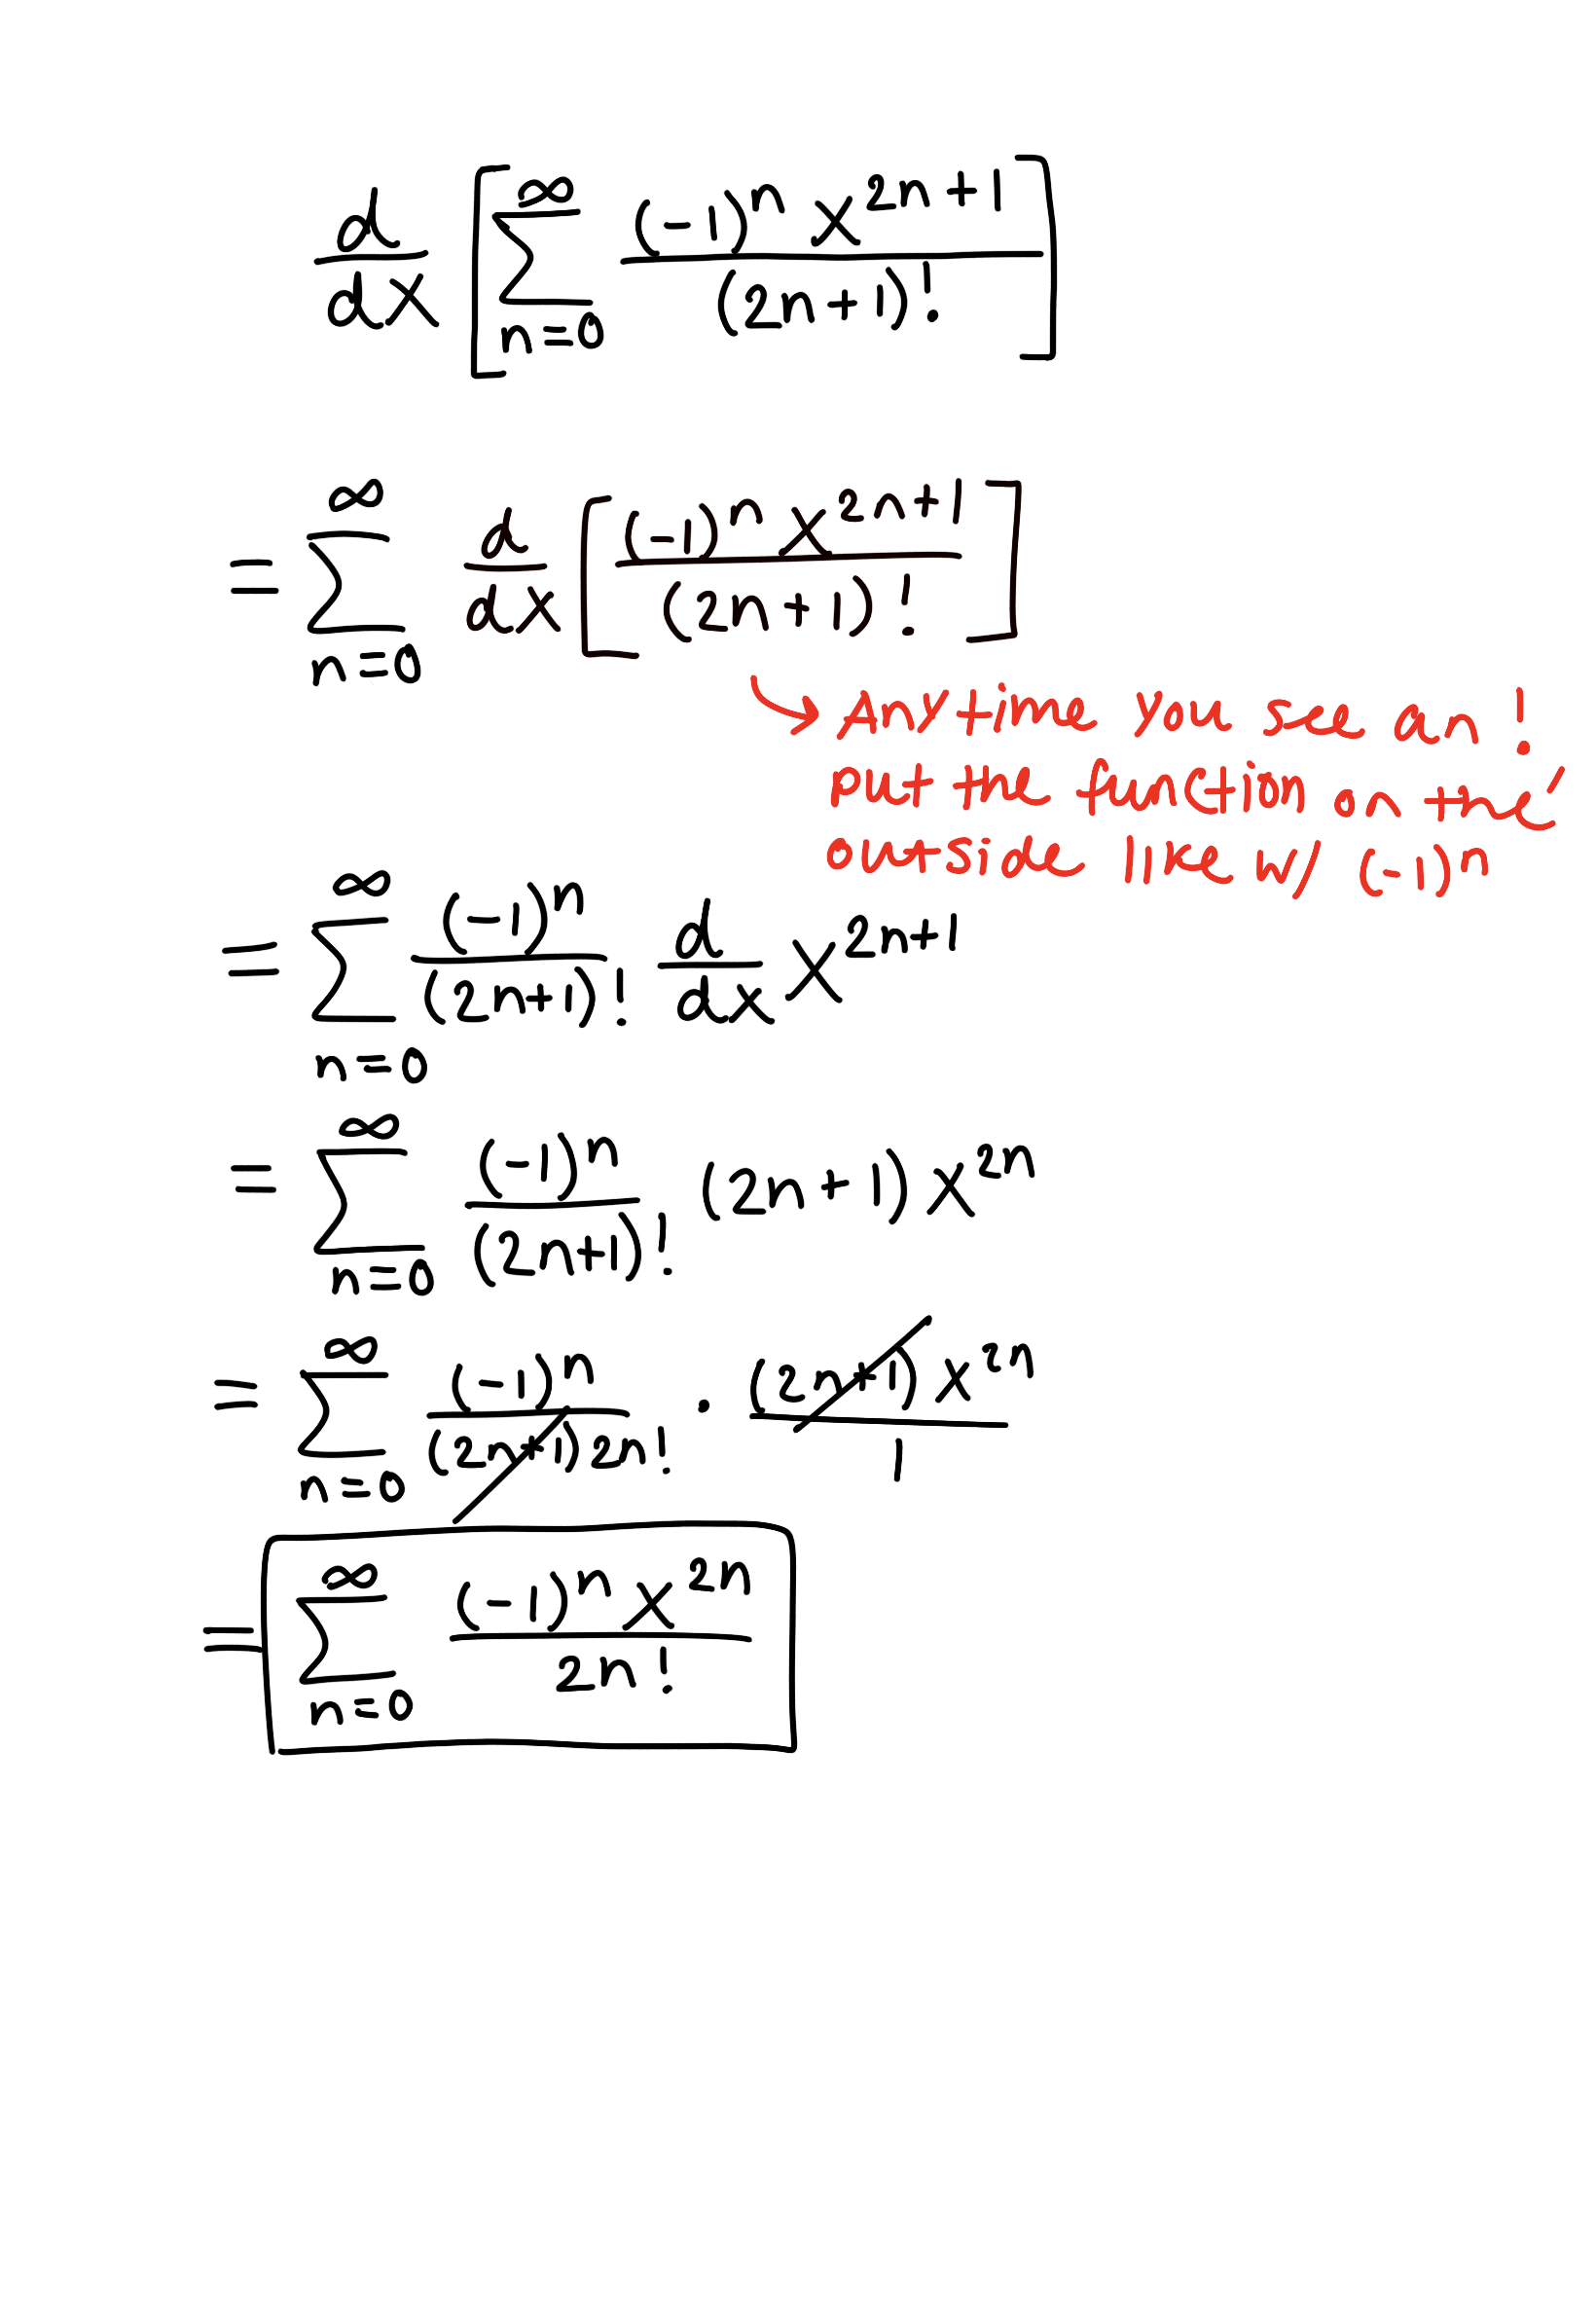 d/dx [ ∑_{n=0}^{∞} (-1)^n x^{2n+1} / (2n+1)! ]
= ∑_{n=0}^{∞} d/dx [ (-1)^n x^{2n+1} / (2n+1)! ]
→ Anytime you see an !
put the function on the
outside like w/ (-1)^n
= ∑_{n=0}^{∞} (-1)^n / (2n+1)! d/dx x^{2n+1}
= ∑_{n=0}^{∞} (-1)^n / (2n+1)! (2n+1) x^{2n}
= ∑_{n=0}^{∞} (-1)^n / (2n+1) 2n! · (2n+1) x^{2n} / 1
= ∑_{n=0}^{∞} (-1)^n x^{2n} / 2n!